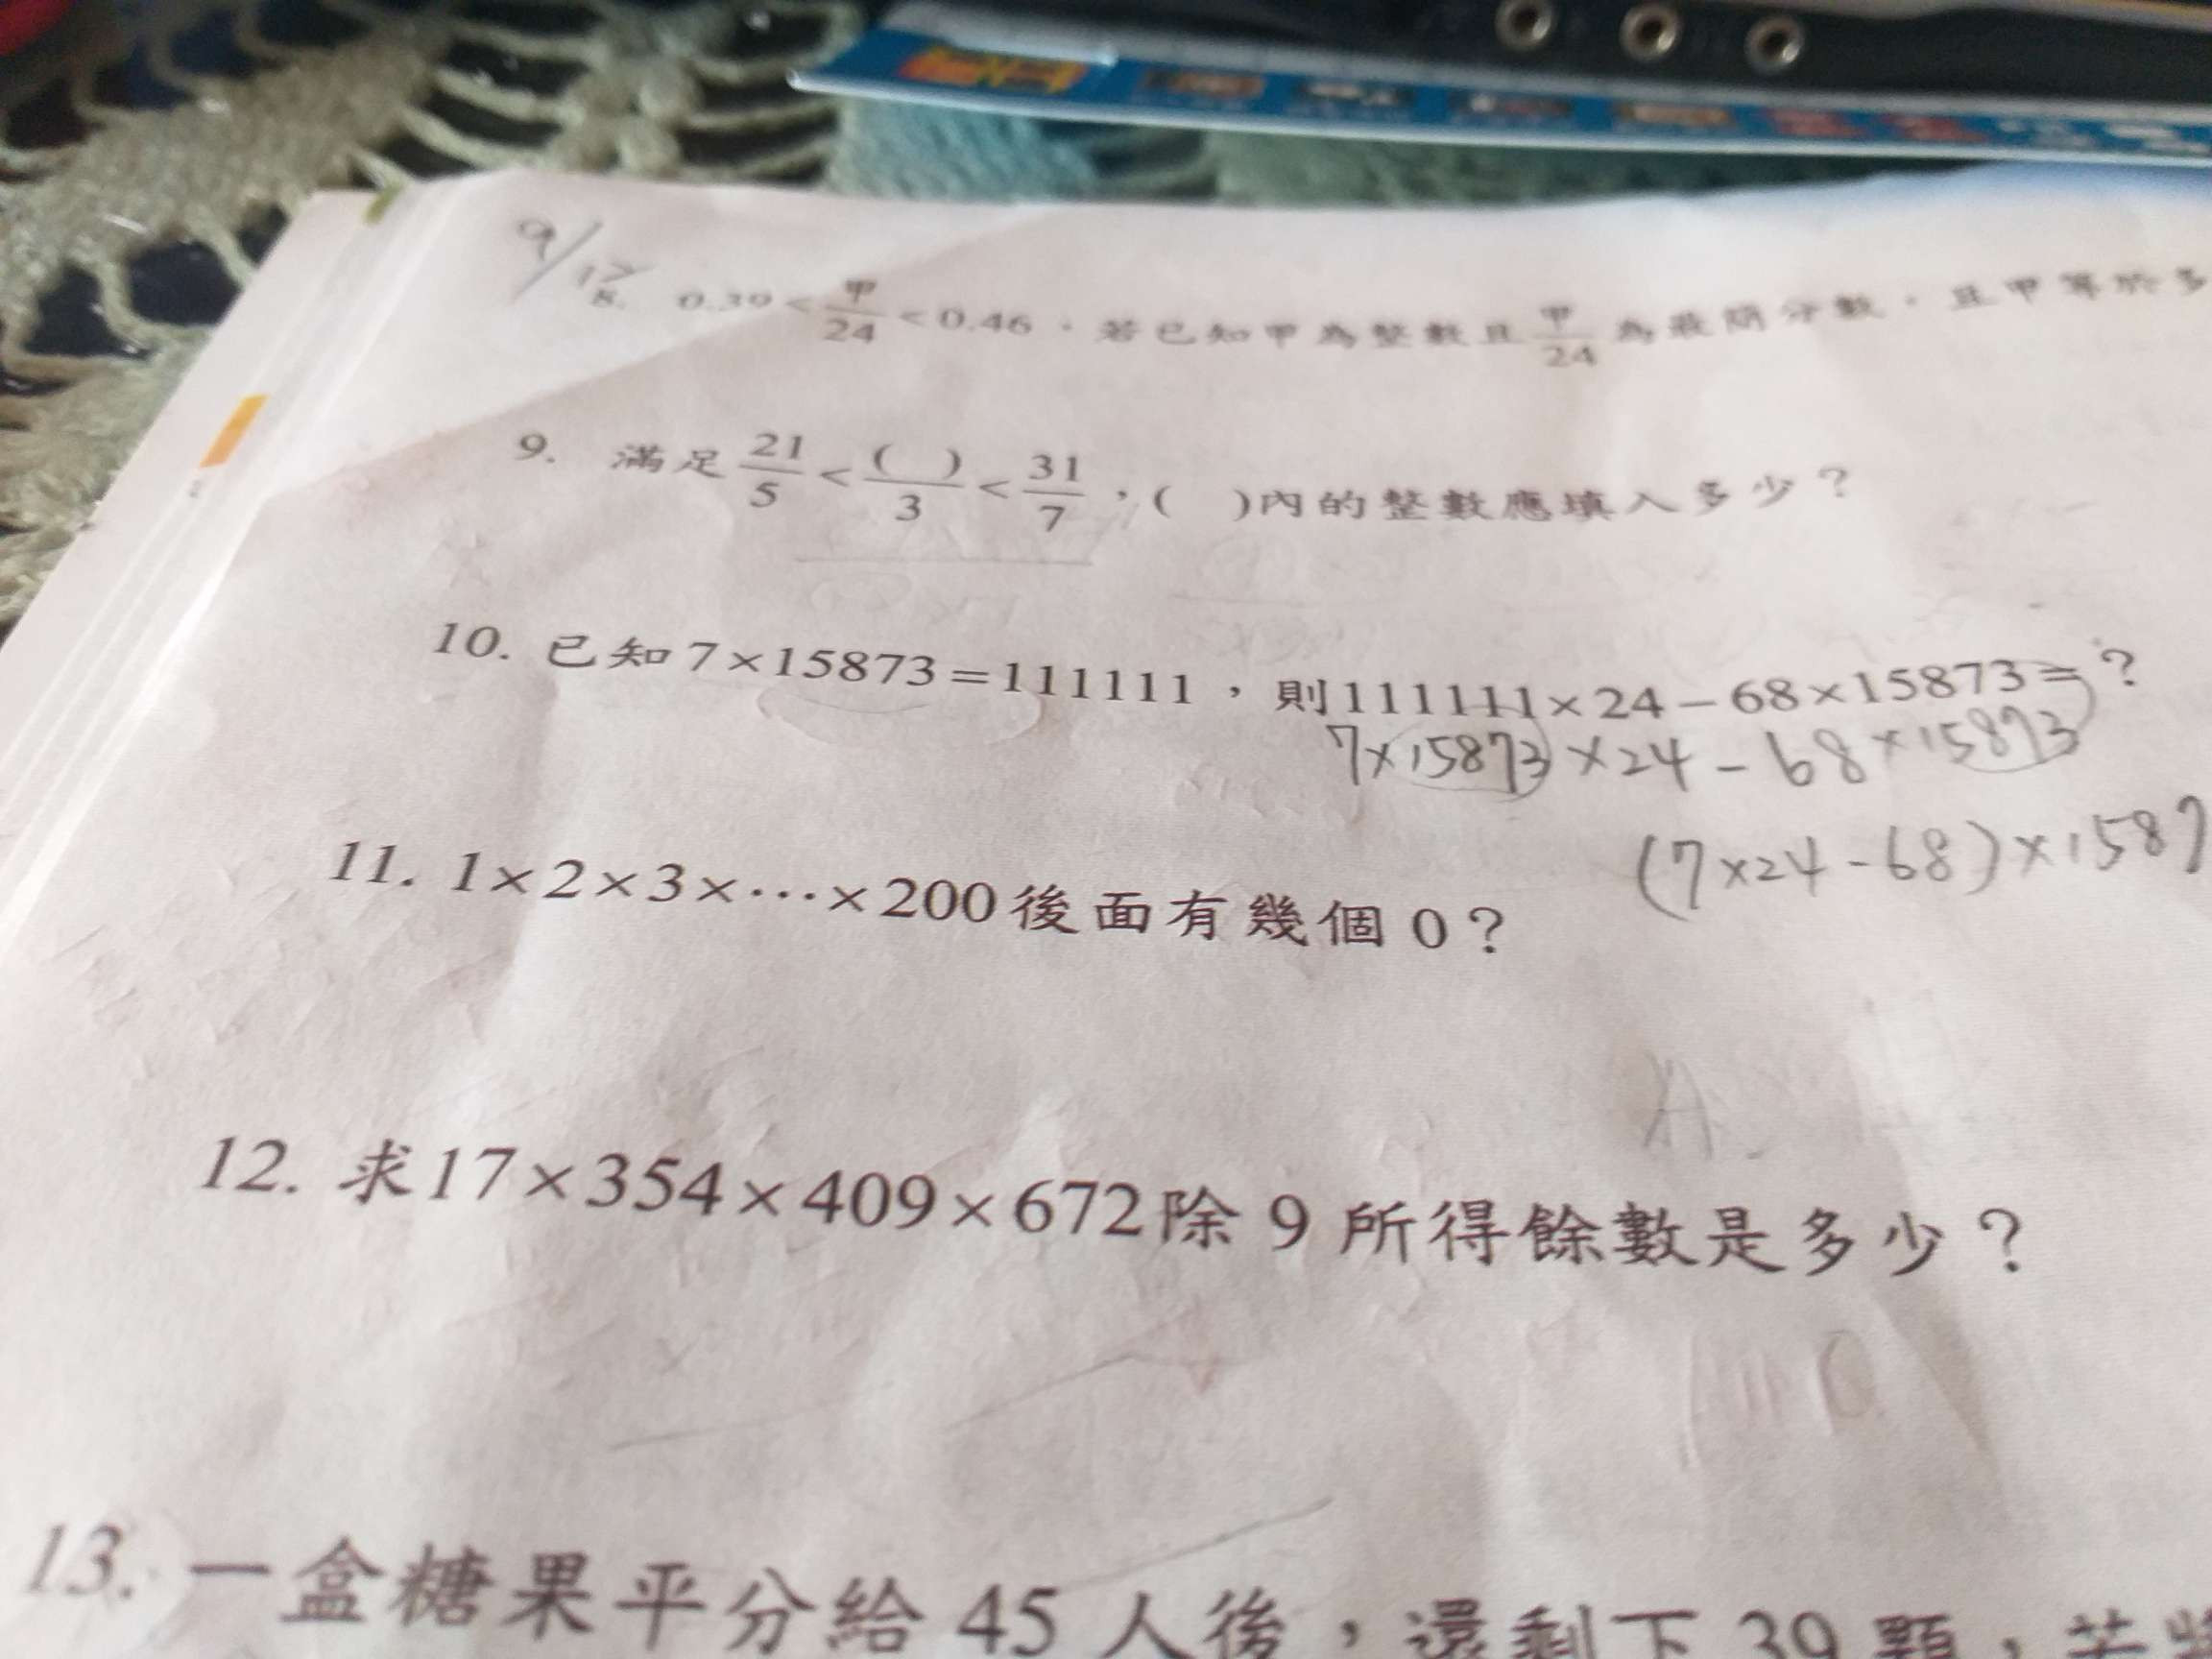 9/17
8. 0.39<甲/24<0.46，若已知甲為整數且甲/24為最簡分數，且甲等於多
9. 滿足21/5<( )/3<31/7，( )內的整數應填入多少？
10. 已知7×15873=111111，則111111×24-68×15873=？
7×15873×24-68×15873
(7×24-68)×1587
11. 1×2×3×…×200後面有幾個0？
12. 求17×354×409×672除9所得餘數是多少？
13. 一盒糖果平分給45人後，還剩下39顆，若將